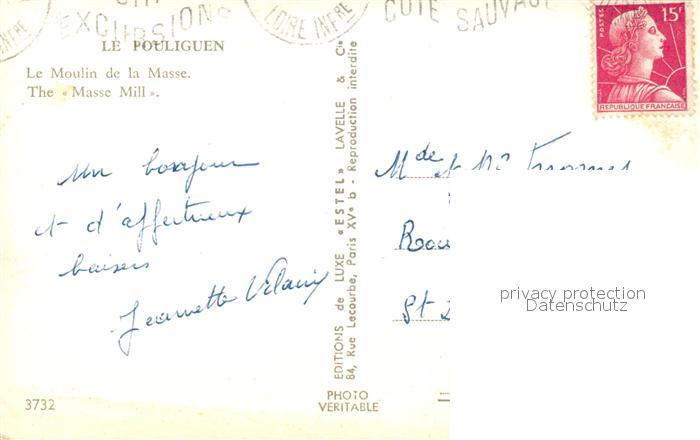 EXCURSIONS
LOIRE INFRE
COTE SAUVAGE
15F
POSTES
REPUBLIQUE FRANÇAISE
LE POULIGUEN
Le Moulin de la Masse.
The « Masse Mill ».
Un bonjour
et d'affectueux
baisers
Jeannette
EDITIONS de LUXE «ESTEL» LAVELLE & Cie
84, Rue Lecourbe, Paris XVe b - Reproduction interdite
Mde et Mr
St
privacy protection
Datenschutz
3732
PHOTO
VERITABLE